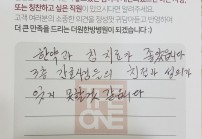 또는 칭찬하고 싶은 직원이 있으시다면 알려주세요.
고객 여러분의 소중한 의견을 정성껏 귀담아듣고 반영하여
더 큰 만족을 드리는 더원한방병원이 되겠습니다 :)
한약과 침 치료가 좋았습니다
3층 간호사님들의 친절과 성의가
잊지 못할것 같습니다
ONE